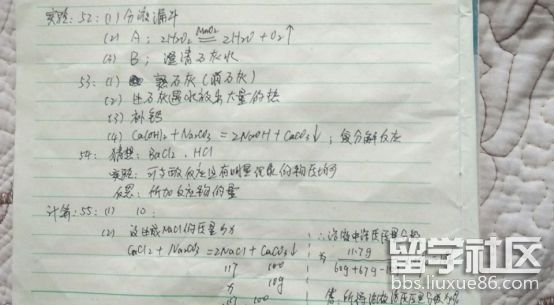 实验:52:(1)分液漏斗
(2) A; 2H2O2 MnO2 2H2O+O2↑
(4) B; 澄清石灰水
53:(1) 熟石灰(消石灰)
(2) 生石灰遇水放出大量的热
(3) 补钙
(4) Ca(OH)2+Na2CO3=2NaOH+CaCO3↓; 复分解反应
54: 猜想: BaCl2、HCl
实验: 可与酸反应这有明显现象的物质均可
反思: 所加反应物的量
计算:55:(1) 10;
(2) 设生成NaCl的质量为
CaCl2+Na2CO3=2NaCl+CaCO3↓
117 100
10g
117 100
∴溶液中溶质质量分数
为 11.7g
60g+67g-1
答:所得溶液溶质质量
留学社区
bbs.liuxue86.com